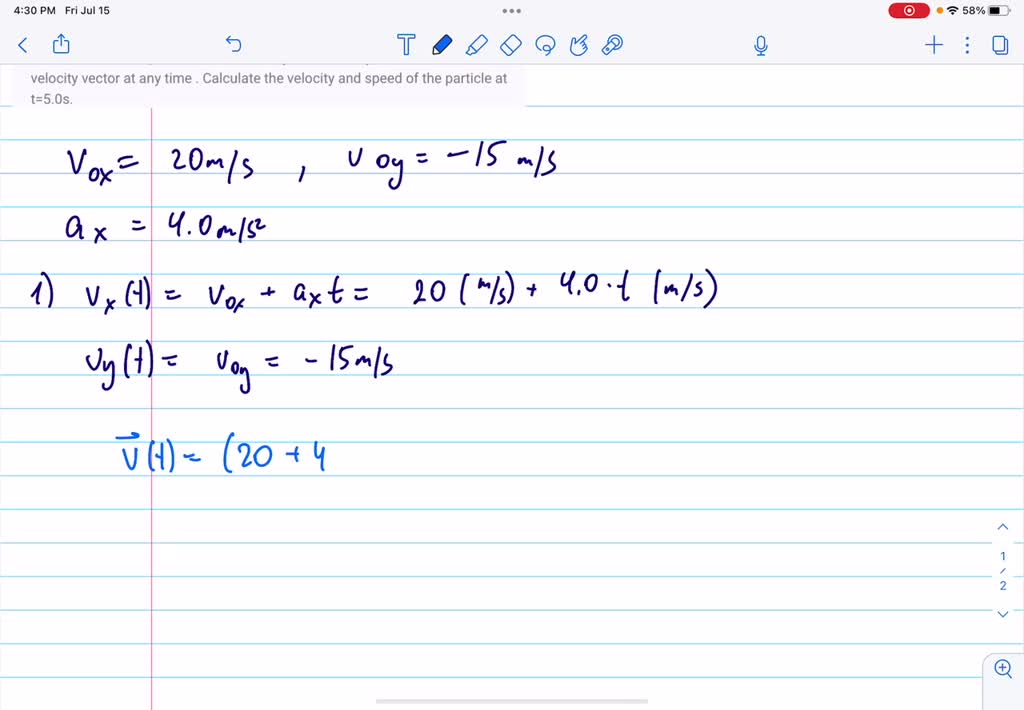 4:30 PM Fri Jul 15
58%
velocity vector at any time . Calculate the velocity and speed of the particle at
t=5.0s.
V₀ₓ = 20 m/s , v₀y = -15 m/s
aₓ = 4.0 m/s²
1) vₓ(t) = v₀ₓ + aₓt = 20 (m/s) + 4.0·t (m/s)
vy(t) = v₀y = -15 m/s
v⃗(t) = (20 + 4
1
/
2